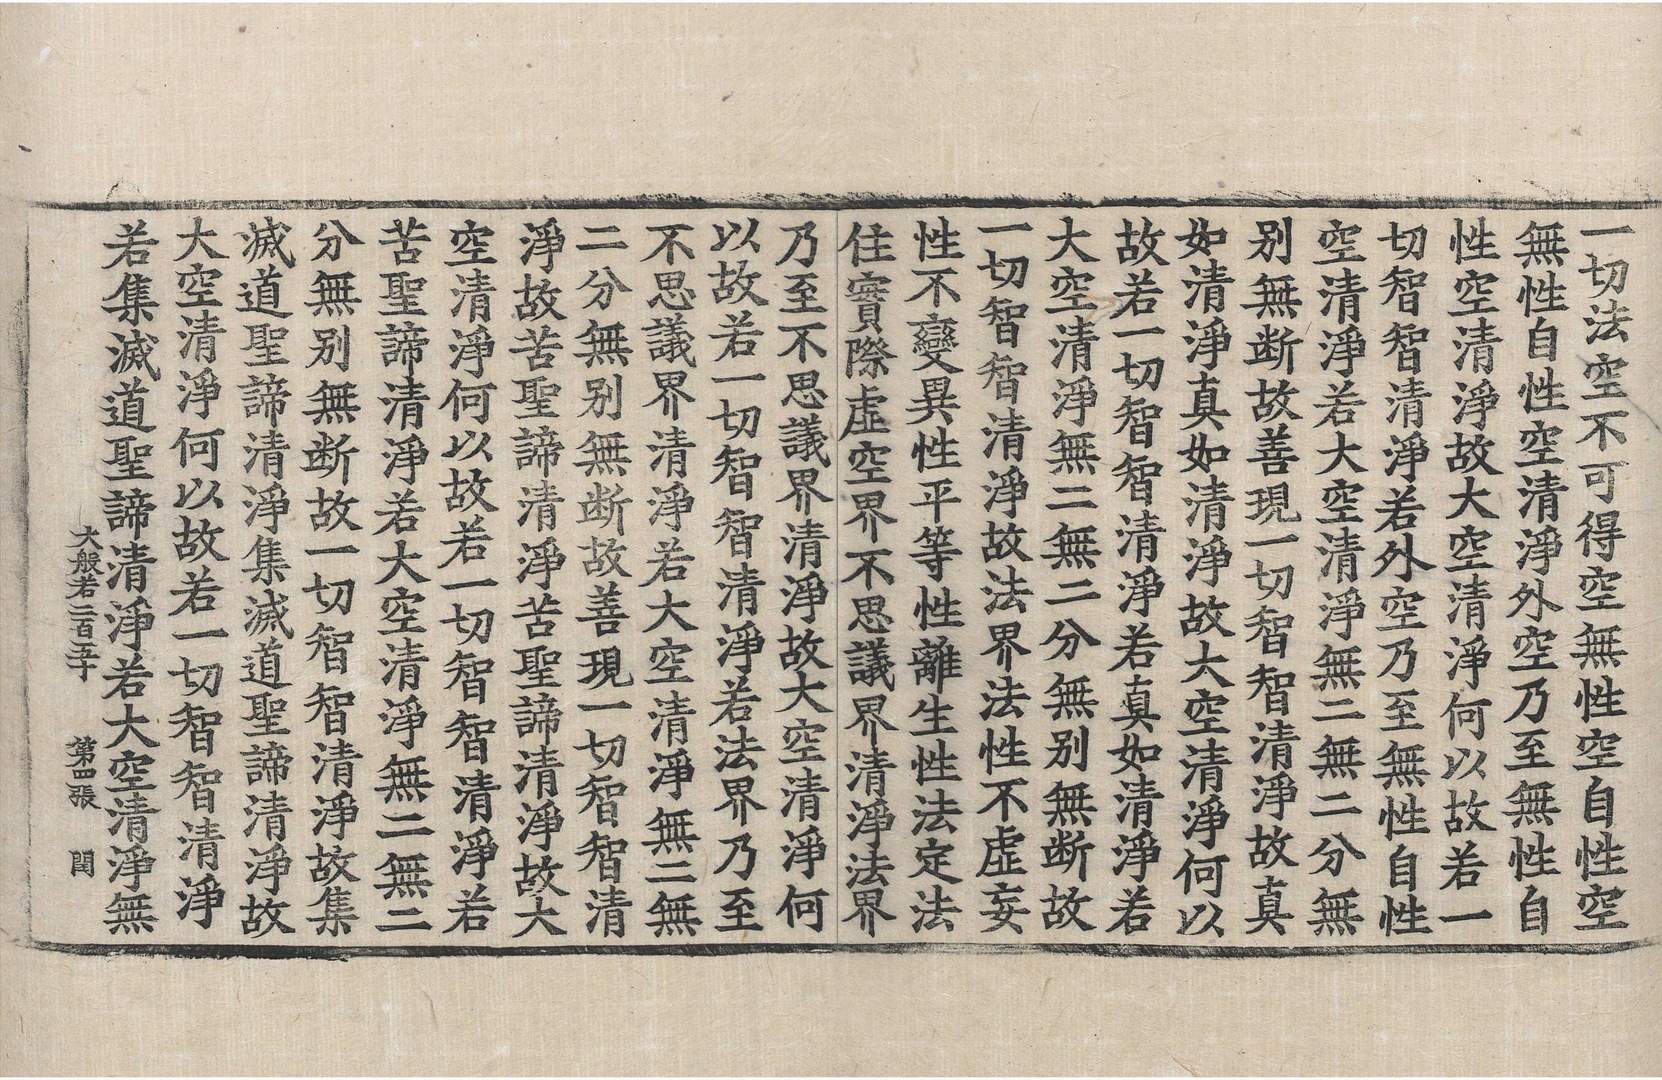 一切法空不可得空無性空自性空
無性自性空清淨外空乃至無性自
性空清淨故大空清淨何以故若一
切智智清淨若外空乃至無性自性
空清淨若大空清淨無二無二分無
别無断故善現一切智智清淨故真
如清淨真如清淨故大空清淨何以
故若一切智智清淨若真如清淨若
大空清淨無二無二分無别無断故
一切智智清淨故法界法性不虛妄
性不變異性平等性離生性法定法
住實際虛空界不思議界清淨法界
乃至不思議界清淨故大空清淨何
以故若一切智智清淨若法界乃至
不思議界清淨若大空清淨無二無
二分無别無断故善現一切智智清
淨故苦聖諦清淨苦聖諦清淨故大
空清淨何以故若一切智智清淨若
苦聖諦清淨若大空清淨無二無二
分無别無断故一切智智清淨故集
滅道聖諦清淨集滅道聖諦清淨故
大空清淨何以故若一切智智清淨
若集滅道聖諦清淨若大空清淨無
大般若二百五十 第四張 閏